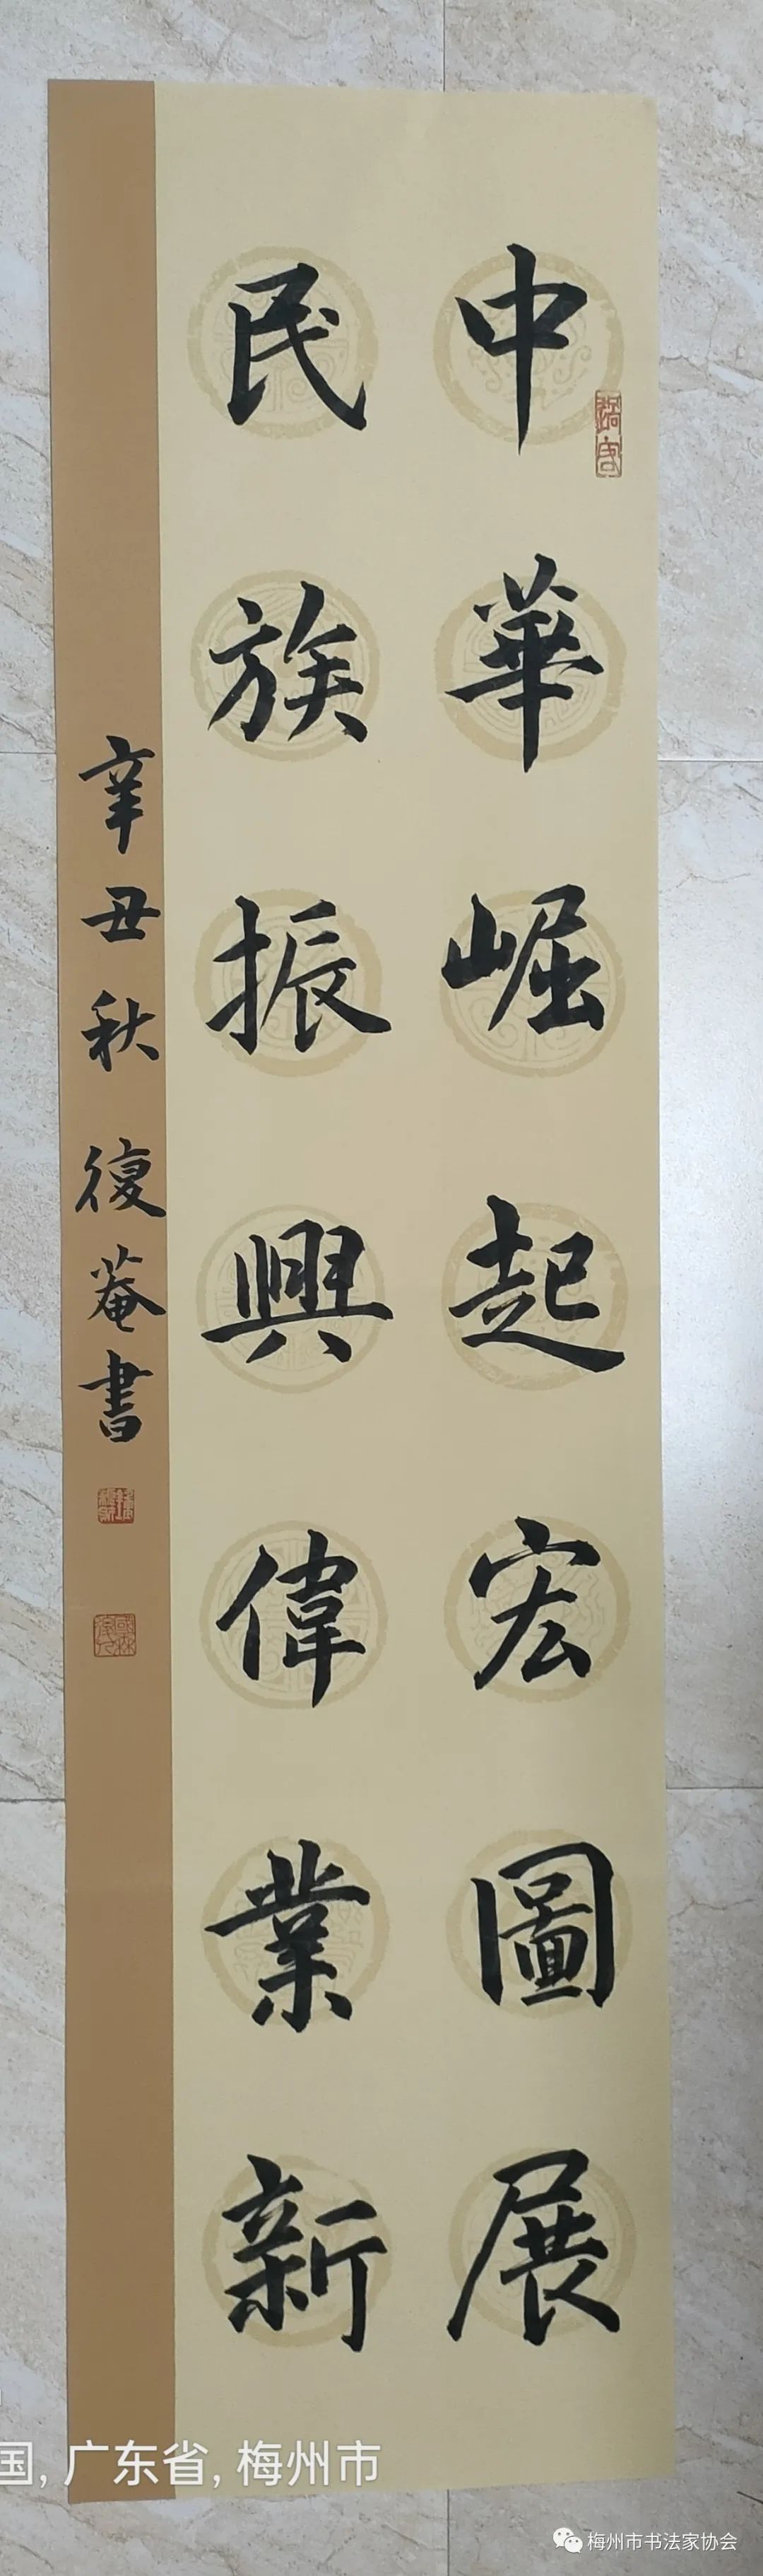 中華崛起宏圖展
民族振興偉業新
辛丑秋 復菴書
国, 广东省, 梅州市
梅州市书法家协会